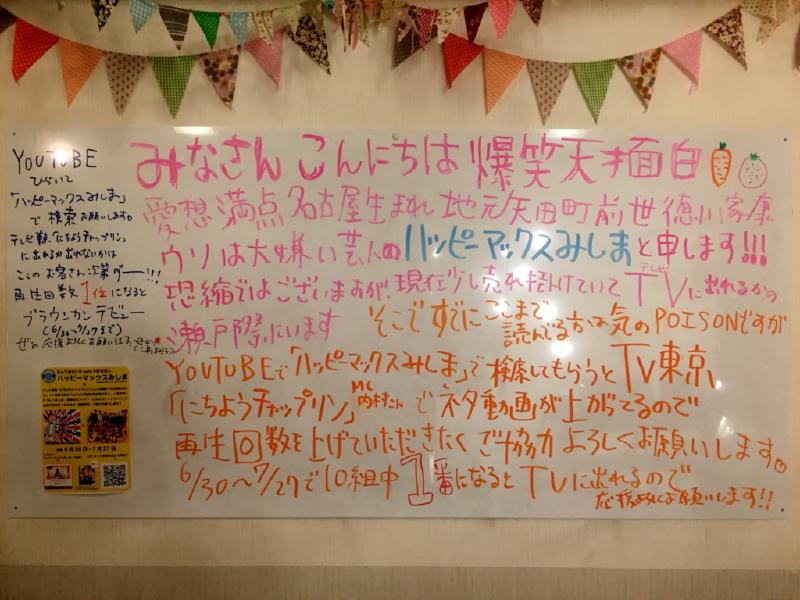 YOUTUBE
ひらいて
「ハッピーマックスみしま」
で検索お願いします。
テレビ東京「にちようチャップリン」
に出れるか出れないかは
ここのお客さん次第デー!!!
再生回数1位になると
ブラウンカンデビュー
(6/30〜7/27まで)
ぜひ応援よろしくお願いします
みなさんこんにちは爆笑天才面白
愛想満点名古屋生まれ地元矢田町前世徳川家康
ウソは大嫌い芸人のハッピーマックスみしまと申します!!!
恐縮ではございますが、現在少し売れ掛けていてTVに出れるかの
テレビ
瀬戸際にいます
そこですでにここまで
読んでる方は気のPOISONですが
YOUTUBEで「ハッピーマックスみしま」で検索してもらうとTV東京
「にちようチャップリン」MC内村さんでネタ動画が上がってるので
再生回数を上げていただきたくご協力よろしくお願いします。
6/30〜7/27で10組中1番になるとTVに出れるので
応援よろしくお願いします!!
ハッピーマックスみしま
6月30日〜7月27日